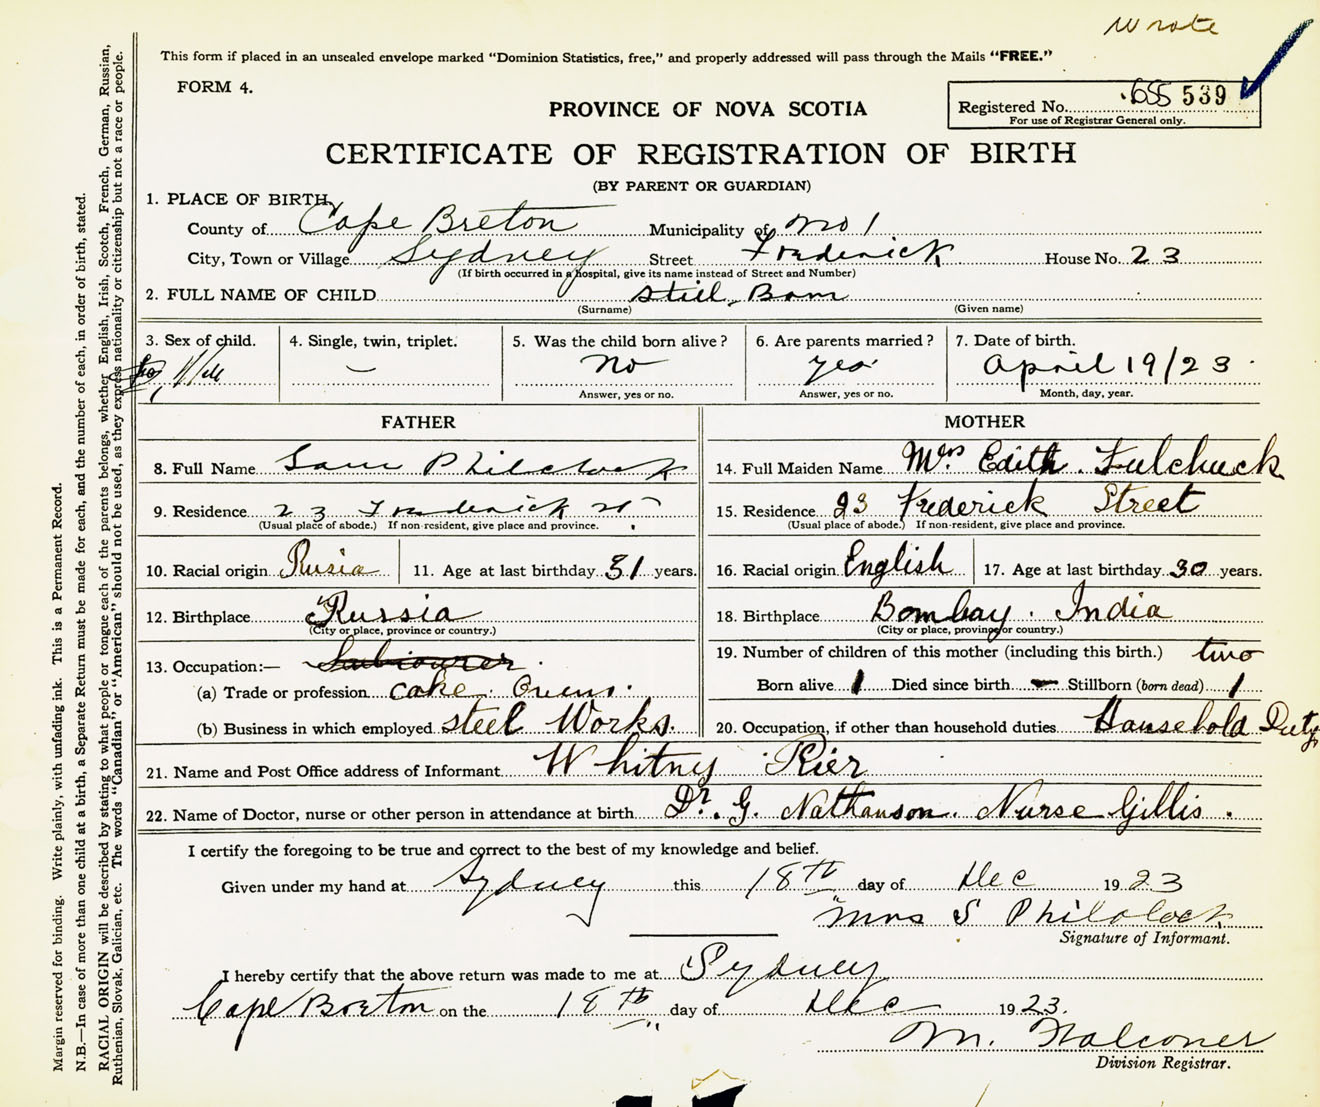 wrote
This form if placed in an unsealed envelope marked "Dominion Statistics, free," and properly addressed will pass through the Mails "FREE."
FORM 4.
Registered No. 539
For use of Registrar General only.
PROVINCE OF NOVA SCOTIA
CERTIFICATE OF REGISTRATION OF BIRTH
(BY PARENT OR GUARDIAN)
1. PLACE OF BIRTH,
County of Cape Breton Municipality of No 1
City, Town or Village Sydney Street Frederick House No. 23
(If birth occurred in a hospital, give its name instead of Street and Number)
2. FULL NAME OF CHILD Still Born
(Surname) (Given name)
3. Sex of child. 4. Single, twin, triplet. 5. Was the child born alive? 6. Are parents married? 7. Date of birth.
No yes April 19/23
Answer, yes or no. Answer, yes or no. Month, day, year.
FATHER MOTHER
8. Full Name Sam 14. Full Maiden Name Mrs Edith Fulchuck
9. Residence 23 Frederick St 15. Residence 23 Frederick Street
(Usual place of abode.) If non-resident, give place and province. (Usual place of abode.) If non-resident, give place and province.
10. Racial origin Rusia 11. Age at last birthday 31 years. 16. Racial origin English 17. Age at last birthday 30 years.
12. Birthplace Russia 18. Birthplace Bombay. India
(City or place, province or country.) (City or place, province or country.)
13. Occupation:— 19. Number of children of this mother (including this birth.) two
(a) Trade or profession coke Ovens. Born alive 1 Died since birth — Stillborn (born dead) 1
(b) Business in which employed steel Works. 20. Occupation, if other than household duties Household Duty
21. Name and Post Office address of Informant Whitney Pier
22. Name of Doctor, nurse or other person in attendance at birth Dr. G. Nathanson. Nurse Gillis.
I certify the foregoing to be true and correct to the best of my knowledge and belief.
Given under my hand at Sydney this 18th day of Dec 1923
Mrs S
Signature of Informant.
I hereby certify that the above return was made to me at Sydney
Cape Breton on the 18th day of Dec 1923.
M. Falconer
Division Registrar.
Margin reserved for binding. Write plainly, with unfading ink. This is a Permanent Record.
N.B.—In case of more than one child at a birth, a Separate Return must be made for each, and the number of each, in order of birth, stated.
RACIAL ORIGIN will be described by stating to what people or tongue each of the parents belongs, whether English, Irish, Scotch, French, German, Russian,
Ruthenian, Slovak, Galician, etc. The words "Canadian" or "American" should not be used, as they express nationality or citizenship but not a race or people.